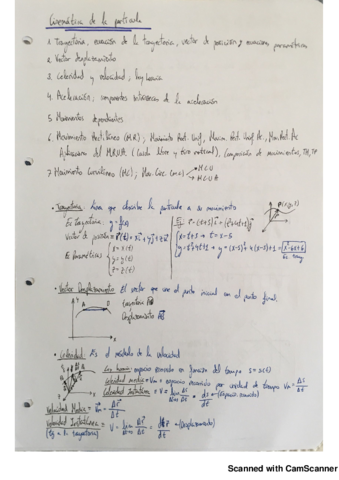 Cinemática de la partícula
1. Trayectoria, ecuación de la trayectoria, vector de posición y ecuaciones paramétricas
2. Vector desplazamiento
3. Celeridad y velocidad; ley horaria
4. Aceleración; componentes intrínsecas de la aceleración
5. Movimientos dependientes
6. Movimiento Rectilíneo (MR); Movimiento Rect. Unif, Movim. Rect. Unif. Ac, Mov. Rect. Ac
Aplicaciones del MRUA (Caída libre y tiro vertical), Composición de movimientos, TH, TP
7. Movimiento Curvilíneo (MC); Mov. Circ. (MC) → MCU
→ MCUA
• Trayectoria: línea que describe la partícula en su movimiento
Ec. trayectoria: y = f(x)
Vector de posición
Ec. Paramétricas
x = x(t)
y = y(t)
z = z(t)
x = t+5 → t = x-5
• Vector Desplazamiento: El vector que une el punto inicial con el punto final.
A
B
trayectoria AB
Desplazamiento AB
• Celeridad: Es el módulo de la velocidad
Ley horaria: espacio recorrido en función del tiempo s = s(t)
Celeridad media = Vm = espacio recorrido por unidad de tiempo Vm = Δs/Δt
Celeridad instantánea
Velocidad Media = Vm = Δr/Δt
Velocidad Instantánea =
(Desplazamiento)
Scanned with CamScanner